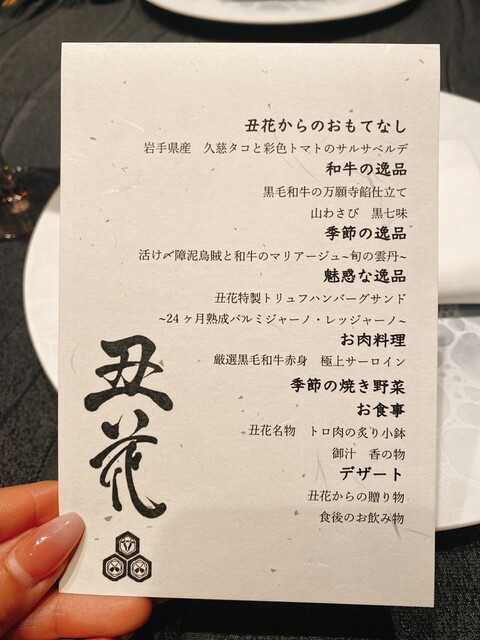 丑花からのおもてなし
岩手県産　久慈タコと彩色トマトのサルサベルデ
和牛の逸品
黒毛和牛の万願寺餡仕立て
山わさび　黒七味
季節の逸品
活け〆障泥烏賊と和牛のマリアージュ~旬の雲丹~
魅惑な逸品
丑花特製トリュフハンバーグサンド
~24ヶ月熟成パルミジャーノ・レッジャーノ~
お肉料理
厳選黒毛和牛赤身　極上サーロイン
季節の焼き野菜
お食事
丑花名物　トロ肉の炙り小鉢
御汁　香の物
デザート
丑花からの贈り物
食後のお飲み物
丑花